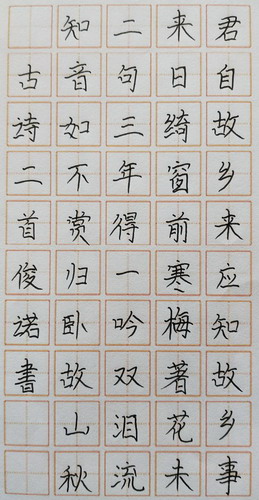 君自故乡来应知故乡事
来日绮窗前寒梅著花未
二句三年得一吟双泪流
知音如不赏归卧故山秋
古诗二首俊诺書